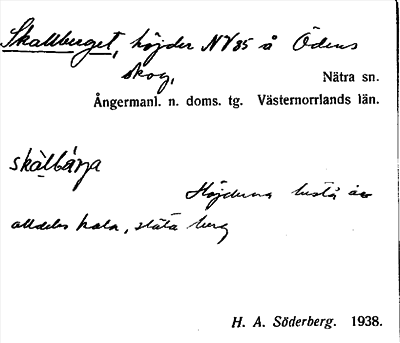 Skallberget, höjder NV 35 å Ödens
skog,
Nätra sn.
Ångermanl. n. doms. tg. Västernorrlands län.
skàlbárja
Höjderna bestå av
alldeles kala, släta berg
H. A. Söderberg. 1938.